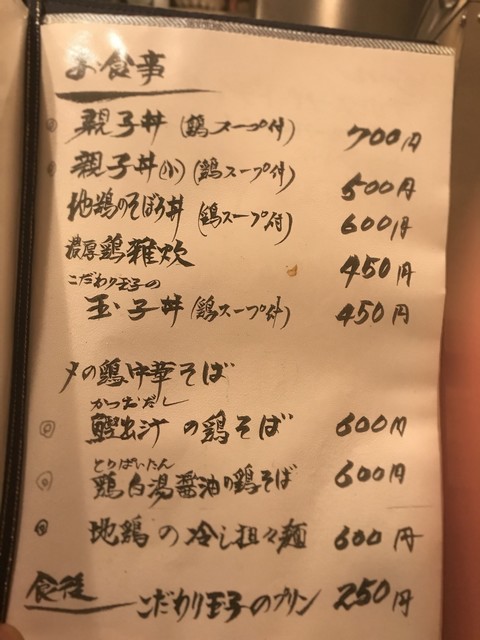 お食事
親子丼 (鶏スープ付) 700円
親子丼(小) (鶏スープ付) 500円
地鶏のそぼろ丼 (鶏スープ付) 600円
濃厚鶏雑炊 450円
こだわり玉子の
玉子丼 (鶏スープ付) 450円
〆の鶏中華そば
かつおだし
鰹出汁の鶏そば 600円
とりぱいたん
鶏白湯醤油の鶏そば 600円
地鶏の冷し担々麺 600円
食後
こだわり玉子のプリン 250円